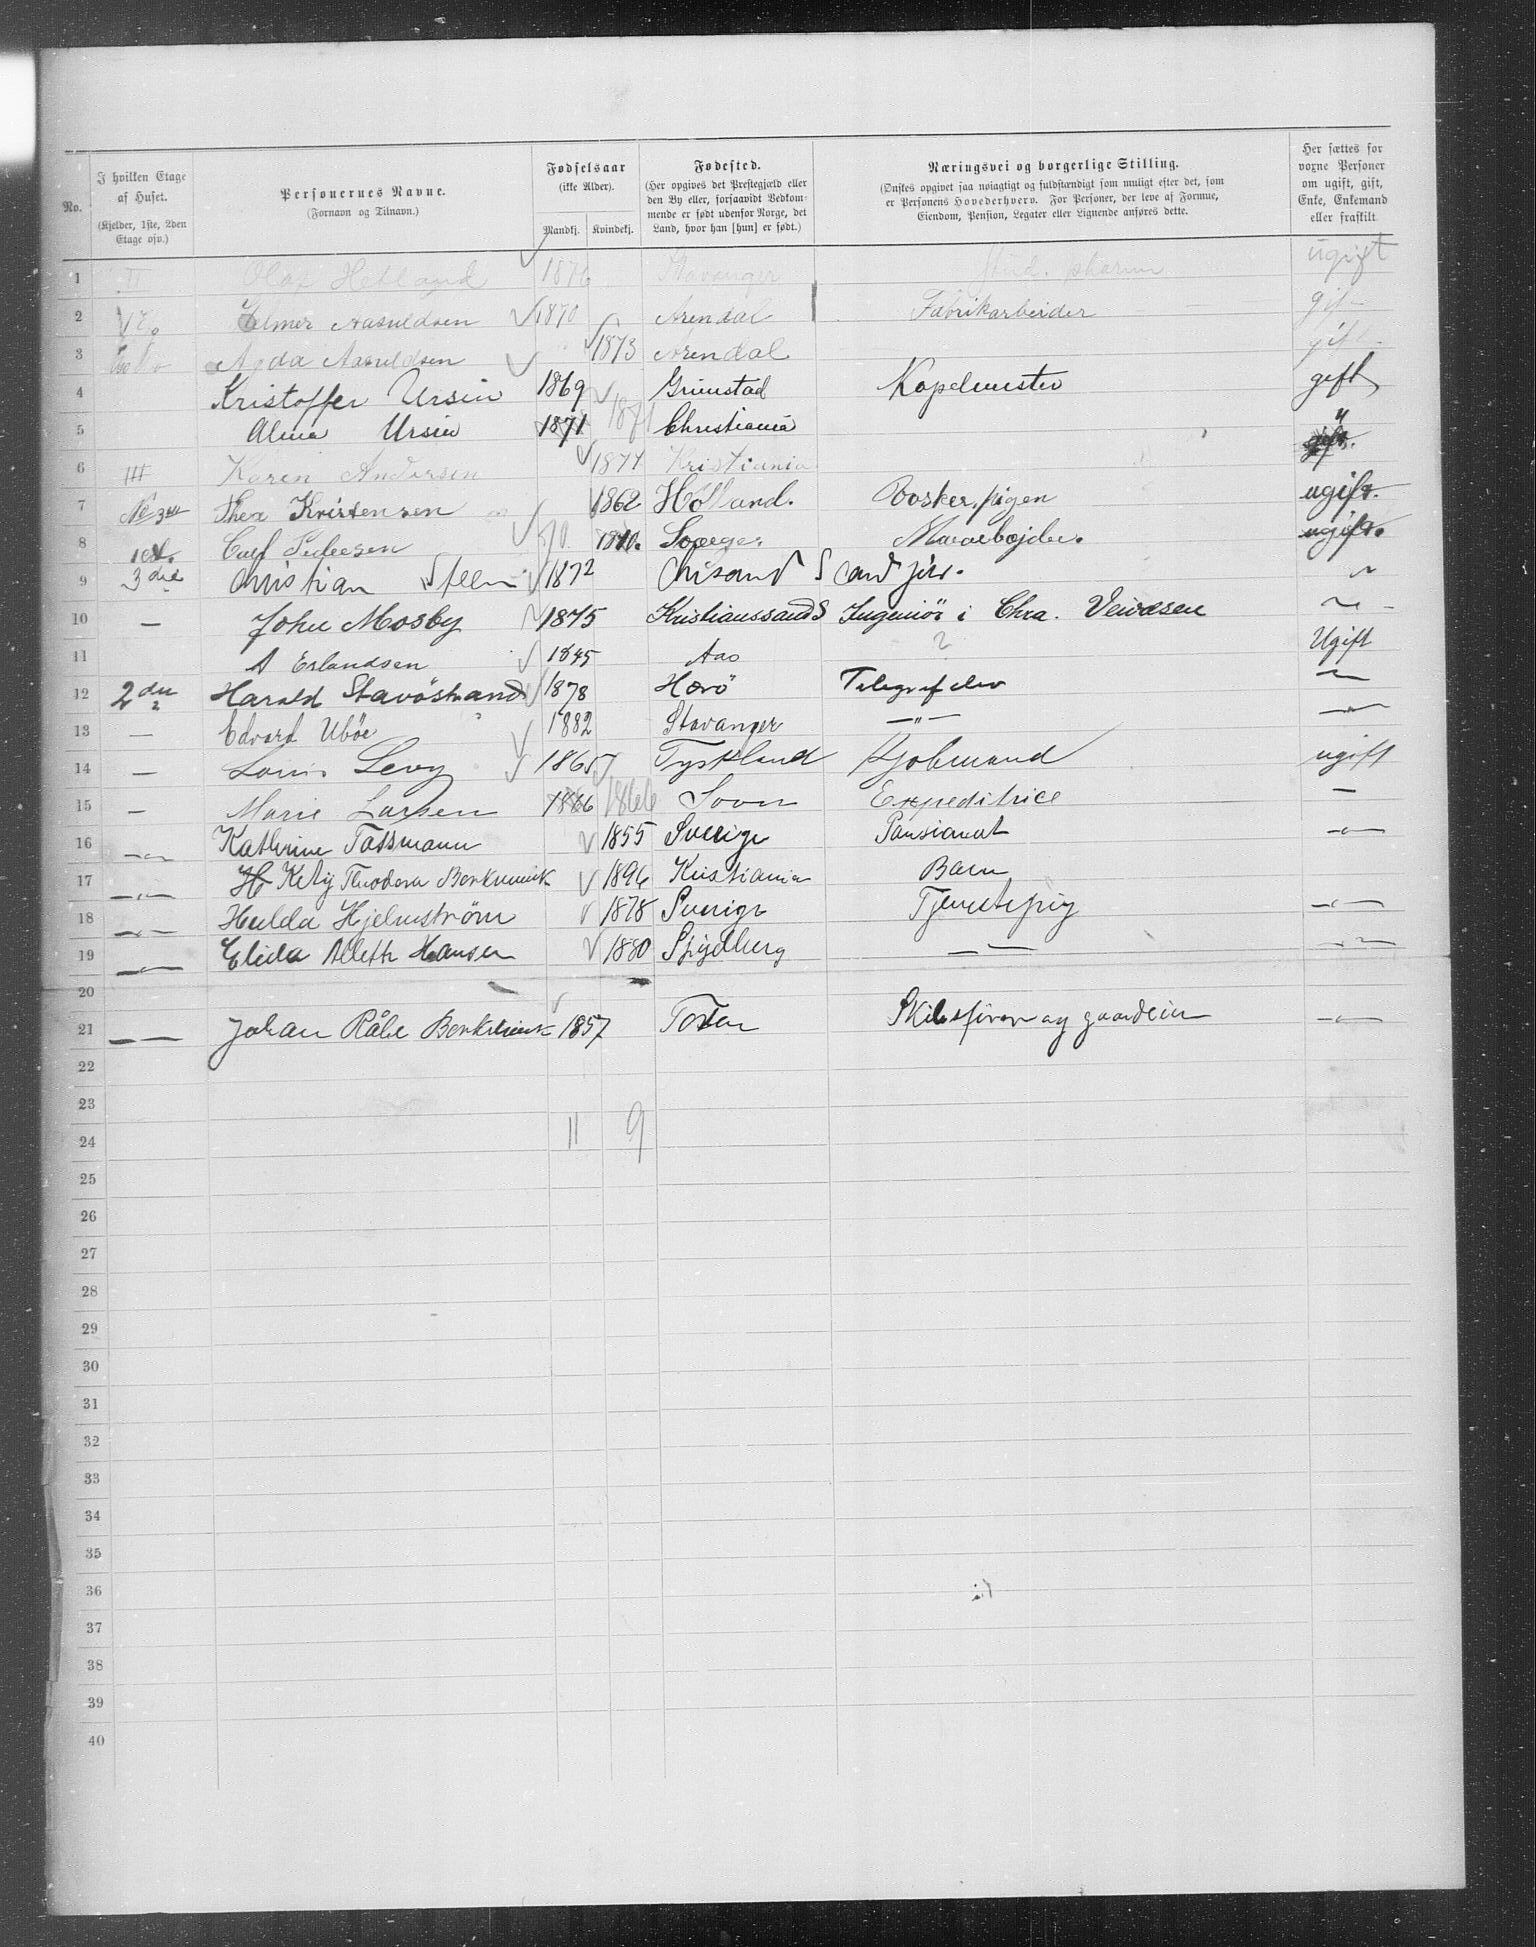 No. I hvilken Etage af Huset. (Kjelder, 1ste, 2den Etage osv.) Personernes Navne. (Fornavn og Tilnavn.) Fødselsaar (ikke Alder). Mandkj. Kvindekj. Fødested. (Her opgives det Prestegjæld eller den By eller, forsaavidt Vedkommende er født udenfor Norge, det Land, hvor han [hun] er født.) Næringsvei og borgerlige Stilling. (Ønskes opgivet saa nøiagtigt og fuldstændigt som muligt efter det, som er Personens Hovederhverv. For Personer, der leve af Formue, Eiendom, Pension, Legater eller Lignende anføres dette. Her sættes for voxne Personer om ugift, gift, Enke, Enkemand eller fraskilt
1 II Olaf Hetland 1876 Stavanger Stud. pharm ugift
2 Elmer Aasuldsen 1870 Arendal Fabrikarbeider gif
3 Agda Aasuldsen 1873 Arendal gift
4 Kristoffer Ursin 1869 Grimstad Kapelmester gift
5 Alma Ursin 1871 1871 Christiania "
6 III Karen Andersen 1877 Kristiania
7 Thea Kristensen 1862 Holland. ugift.
8 Carl Pedersen 70 1870. ugift.
9 3die Christian Steen 1872 Chrisand S cand jur. ~
10 — John Mosby 1875 Kristianssands Ingeniør i Chra. Veivæsen ~
11 A Erlandsen 1845 Aas ? Ugift
12 2den Harald Stavöstrand 1878 Herö Telegrafelev ~
13 — Edvard Uböe 1882 Stavanger —"— —"—
14 — Louis Levy 1865 Tyskland Kjøbmand ugift
15 — Marie Larsen 1866 1866 Expeditrice —
16 —"— Kathrine Tassmann 1855 Sverige Pansionat —"—
17 —"— Kety Theodora 1896 Kristiania Barn
18 —"— Hulda Hjelmstrøm 1878 Sverige Tjenestepig —"—
19 —"— Elida Alleth Hansen 1880 —"— —"—
20
21 —"— Johan Råbe 1857 Toten —"—
22
23
24 11 9
25
26
27
28
29
30
31
32
33
34
35
36
37
38
39
40